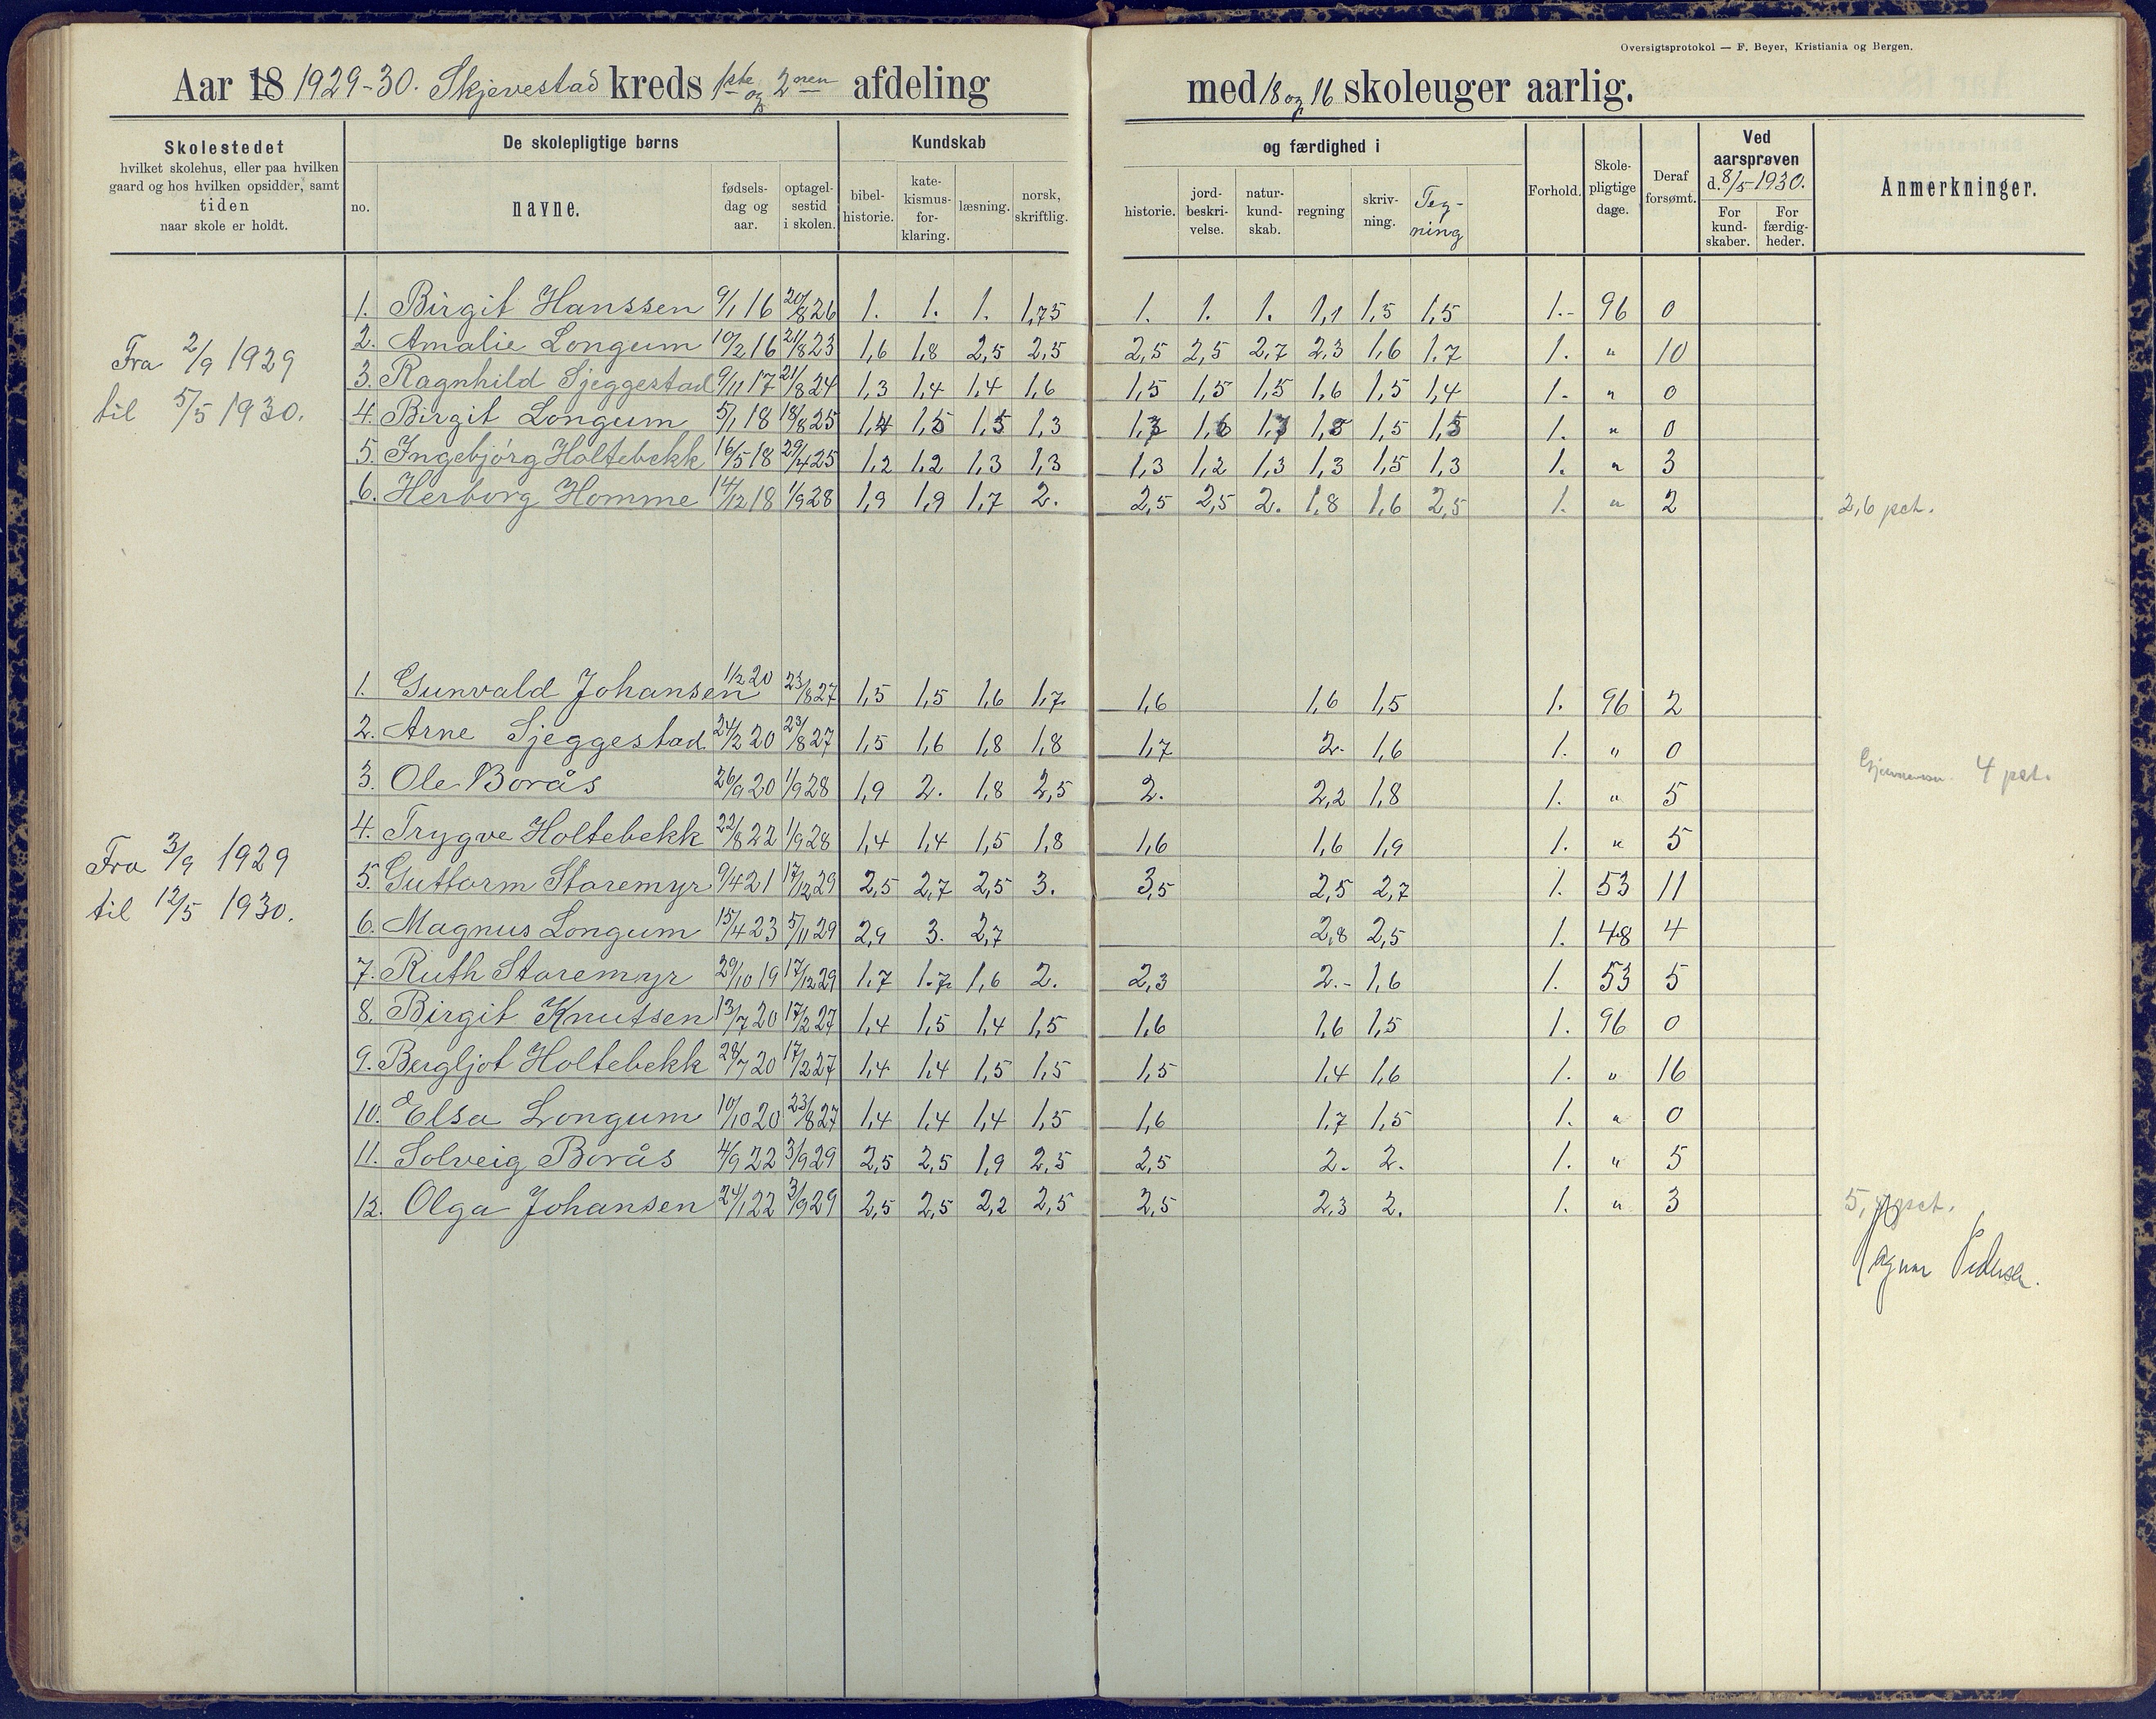 Oversigtsprotokol — F. Beyer, Kristiania og Bergen.
Aar 18 1929-30. Skjevestad kreds 1ste og 2nen afdeling med 18 og 16 skoleuger aarlig.
Skolestedet
hvilket skolehus, eller paa hvilken
gaard og hos hvilken opsidder, samt
tiden
naar skole er holdt.
De skolepligtige børns
no.
navne.
fødsels-
dag og
aar.
optagel-
sestid
i skolen.
Kundskab
bibel-
historie.
kate-
kismus-
for-
klaring.
læsning.
norsk,
skriftlig.
og færdighed i
historie.
jord-
beskri-
velse.
natur-
kund-
skab.
regning
skriv-
ning.
Teg-
ning
Forhold.
Skole-
pligtige
dage.
Deraf
forsømt.
Ved
aarsprøven
d. 8/5 1930.
For
kund-
skaber.
For
færdig-
heder.
Anmerkninger.
Fra 2/9 1929
til 5/5 1930.
1. Birgit Hanssen 9/1 16 20/8 26 1. 1. 1. 1,75 1. 1. 1. 1,1 1,5 1,5 1.- 96 0
2. Amalie Longum 10/2 16 21/8 23 1,6 1,8 2,5 2,5 2,5 2,5 2,7 2,3 1,6 1,7 1. " 10
3. Ragnhild Sjeggestad 9/11 17 21/8 24 1,3 1,4 1,4 1,6 1,5 1,5 1,5 1,6 1,5 1,4 1. " 0
4. Birgit Longum 5/1 18 18/8 25 1,4 1,5 1,5 1,3 1,3 1,6 1,3 1,5 1,5 1. " 0
5. Ingebjørg Holtebekk 16/5 18 29/4 25 1,2 1,2 1,3 1,3 1,3 1,2 1,3 1,3 1,5 1,3 1. " 3
6. Herborg Homme 14/12 18 1/9 28 1,9 1,9 1,7 2. 2,5 2,5 2. 1,8 1,6 2,5 1. " 2 2,6 pct.
Fra 3/9 1929
til 12/5 1930.
1. Gunvald Johansen 1/2 20 23/8 27 1,5 1,5 1,6 1,7 1,6 1,6 1,5 1. 96 2
2. Arne Sjeggestad 24/2 20 23/8 27 1,5 1,6 1,8 1,8 1,7 2. 1,6 1. " 0
3. Ole Borås 26/9 20 1/9 28 1,9 2. 1,8 2,5 2. 2,2 1,8 1. " 5 4 pct.
4. Trygve Holtebekk 22/8 22 1/9 28 1,4 1,4 1,5 1,8 1,6 1,6 1,9 1. " 5
5. Guttorm Staremyr 9/4 21 17/12 29 2,5 2,7 2,5 3. 3,5 2,5 2,7 1. 53 11
6. Magnus Longum 15/4 23 5/11 29 2,9 3. 2,7 2,8 2,5 1. 48 4
7. Ruth Staremyr 29/10 19 17/12 29 1,7 1.7 1,6 2. 2,3 2.- 1,6 1. 53 5
8. Birgit Knutsen 13/7 20 17/2 27 1,4 1,5 1,4 1,5 1,6 1,6 1,5 1. 96 0
9. Bergljot Holtebekk 28/7 20 17/2 27 1,4 1,4 1,5 1,5 1,5 1,4 1,6 1. " 16
10. Elsa Longum 10/10 20 23/8 27 1,4 1,4 1,4 1,5 1,6 1,7 1,5 1. " 0
11. Solveig Borås 4/9 22 3/9 29 2,5 2,5 1,9 2,5 2,5 2. 2. 1. " 5
12. Olga Johansen 24/1 22 3/9 29 2,5 2,5 2,2 2,5 2,5 2,3 2. 1. " 3
Ragnar Pedersen.